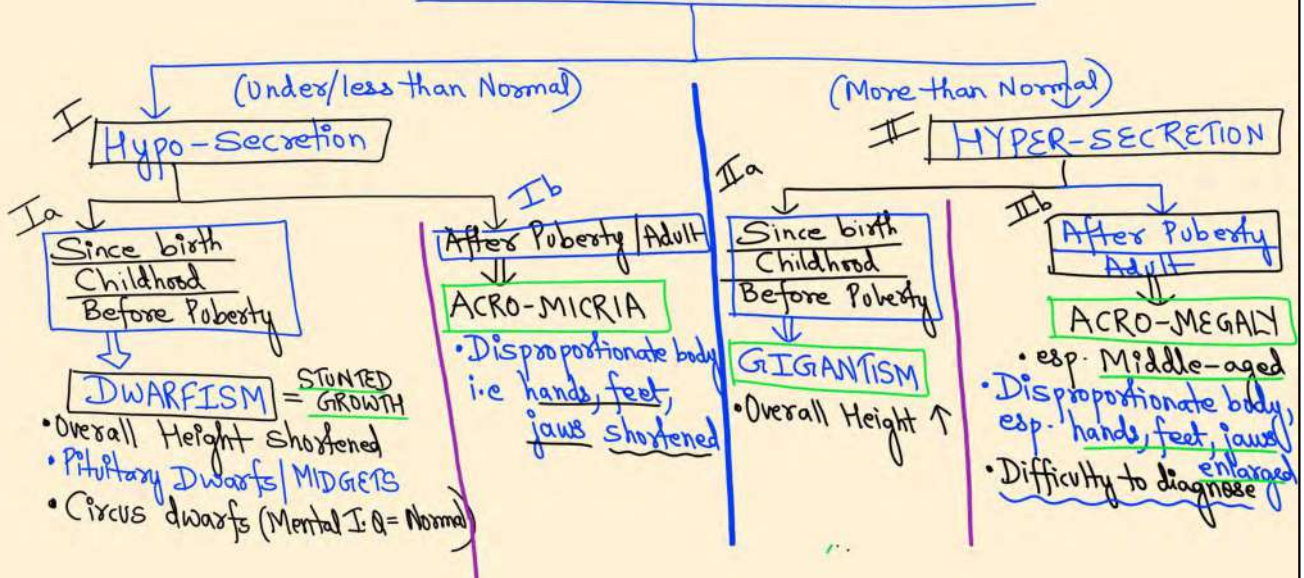 (Under/less than Normal)
(More than Normal)
I
Hypo-Secretion
II
HYPER-SECRETION
Ia
Since birth
Childhood
Before Puberty
DWARFISM = STUNTED GROWTH
•Overall Height Shortened
•Pituitary Dwarfs/MIDGETS
•Circus dwarfs (Mental I.Q = Normal)
Ib
After Puberty/Adult
ACRO-MICRIA
•Disproportionate body
i.e hands, feet,
jaws shortened
IIa
Since birth
Childhood
Before Puberty
GIGANTISM
•Overall Height ↑
IIb
After Puberty
Adult
ACRO-MEGALY
•esp. Middle-aged
•Disproportionate body,
esp. hands, feet, jaws
enlarged
•Difficulty to diagnose